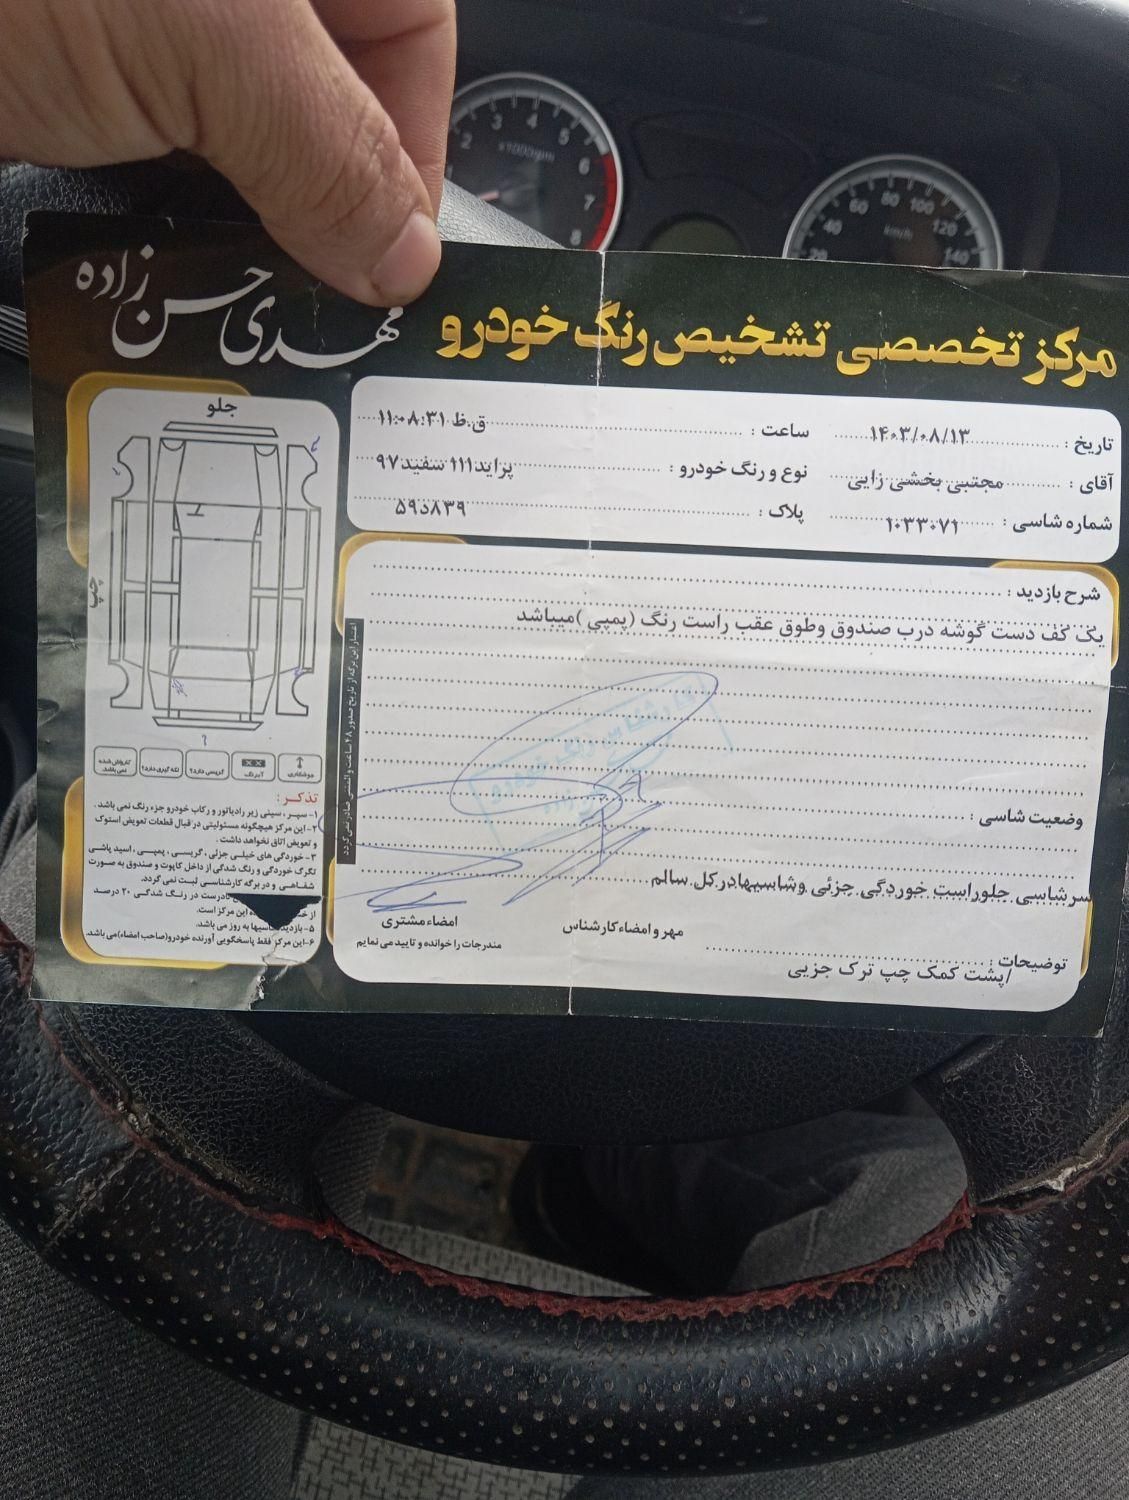 مرکز تخصصی تشخیص رنگ خودرو
مهدی حسن زاده
تاریخ : ۱۴۰۳/۰۸/۱۳
ساعت : ۱۱:۰۸:۳۱ ق.ظ
آقای : مجتبی بخشی زایی
نوع و رنگ خودرو : پراید۱۱۱ سفید۹۷
شماره شاسی : ۱۰۳۳۰۷۱
پلاک : ۸۳۹د۵۹
شرح بازدید :
یک کف دست گوشه درب صندوق وطوق عقب راست رنگ (پمپی )میباشد
وضعیت شاسی :
سرشاسی جلوراست خوردگی جزئی وشاسیهادرکل سالم
مهر و امضاء کارشناس
امضاء مشتری
مندرجات را خوانده و تایید می نمایم
توضیحات :
/پشت کمک چپ ترک جزیی
جلو
چپ
جوشکاری
آبرنگ
گریسی دارد؟
لکه گیری دارد؟
کارواش شده نمی باشد
اعتبار این برگه از تاریخ صدور ۴۸ ساعت و المثنی صادر نمی گردد
تذکر :
۱- سپر ، سینی زیر رادیاتور و رکاب خودرو جزء رنگ نمی باشد .
۲- این مرکز هیچگونه مسئولیتی در قبال قطعات تعویض استوک
و تعویض اتاق نخواهد داشت .
۳- خوردگی های خیلی جزئی ، گریسی ، پمپی ، اسید پاشی
تگرگ خوردگی و رنگ شدگی از داخل کاپوت و صندوق به صورت
شفاهی و در برگه کارشناسی ثبت نمی گردد.
نادرست در رنگ شدگی ۲۰ درصد
این مرکز است.
۵- بازدید شاسیها به روز می باشد.
۶- این مرکز فقط پاسخگویی آورنده خودرو(صاحب امضاء)می باشد.
x1000rpm
2 3 4 5 6 7 8
km/h
20 40 60 80 100 120 140